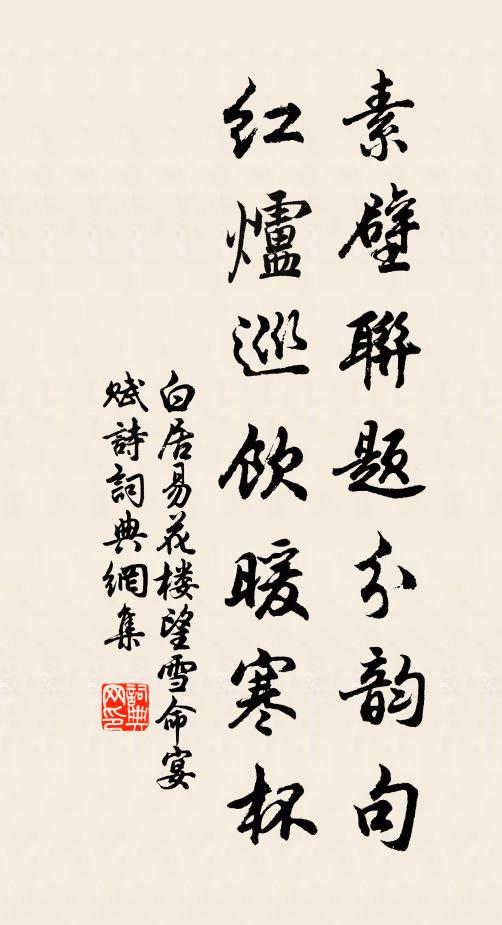 素壁聯題分韵句
红爐巡飲暖寒杯
白居易花楼望雪命宴
赋詩詞典網集
詞典网印